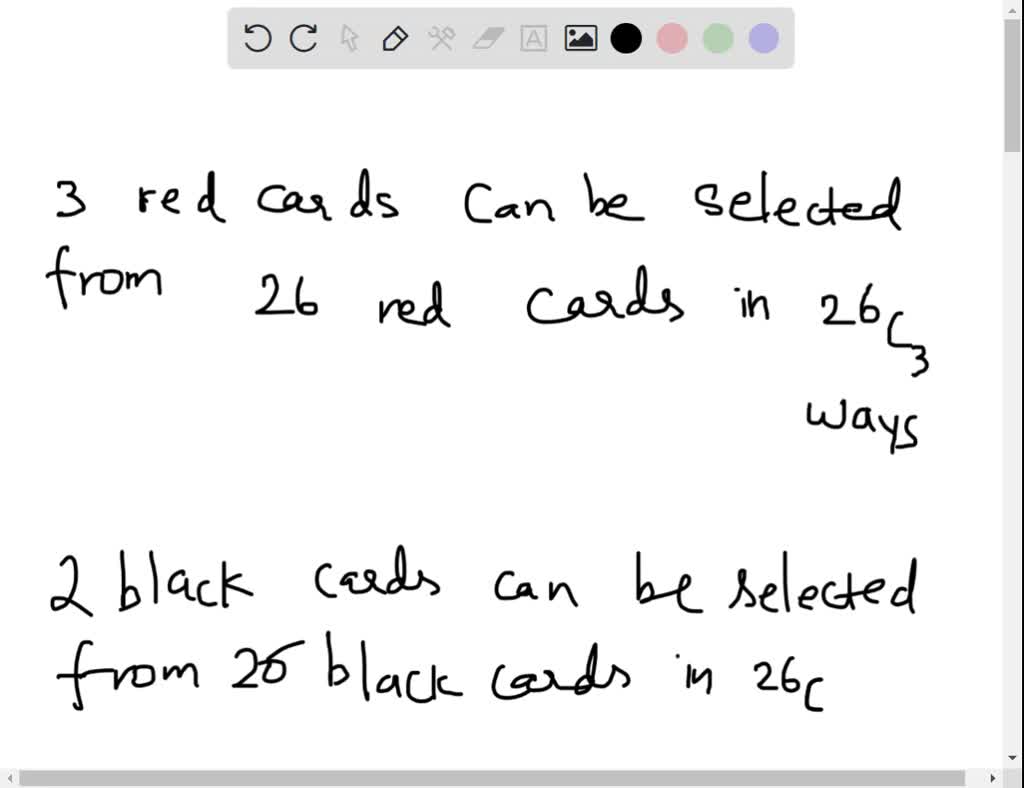 3 red cards can be selected
from 26 red cards in 26C3
ways
2 black cards can be selected
from 26 black cards in 26C